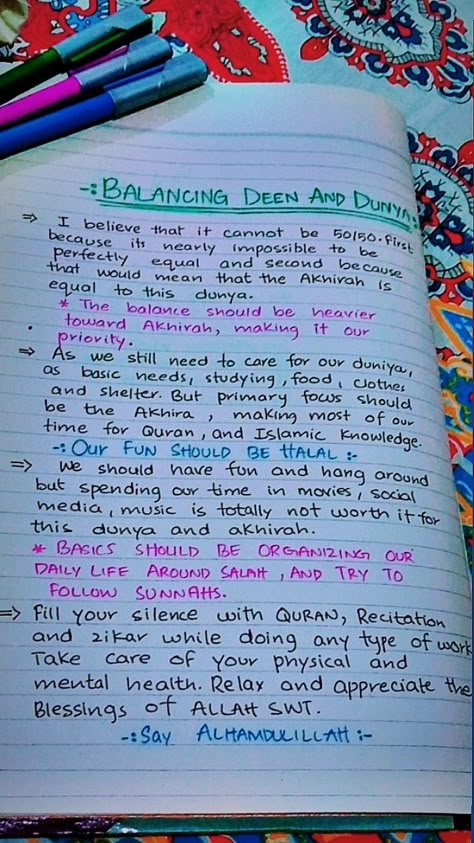 -: BALANCING DEEN AND DUNYA :-
⇒ I believe that it cannot be 50/50. first
because its nearly impossible to be
perfectly equal and second because
that would mean that the Akhirah is
equal to this dunya.
* The balance should be heavier
toward Akhirah, making it our
priority.
⇒ As we still need to care for our duniya,
as basic needs, studying, food, clothes
and shelter. But primary focus should
be the Akhira, making most of our
time for Quran, and Islamic knowledge.
-: OUR FUN SHOULD BE HALAL :-
⇒ We should have fun and hang around
but spending our time in movies, social
media, music is totally not worth it for
this dunya and akhirah.
* BASICS SHOULD BE ORGANIZING OUR
DAILY LIFE AROUND SALAH, AND TRY TO
FOLLOW SUNNAHS.
⇒ Fill your silence with QURAN, Recitation
and zikar while doing any type of work
Take care of your physical and
mental health. Relax and appreciate the
Blessings of ALLAH SWT.
-: Say ALHAMDULILLAH :-